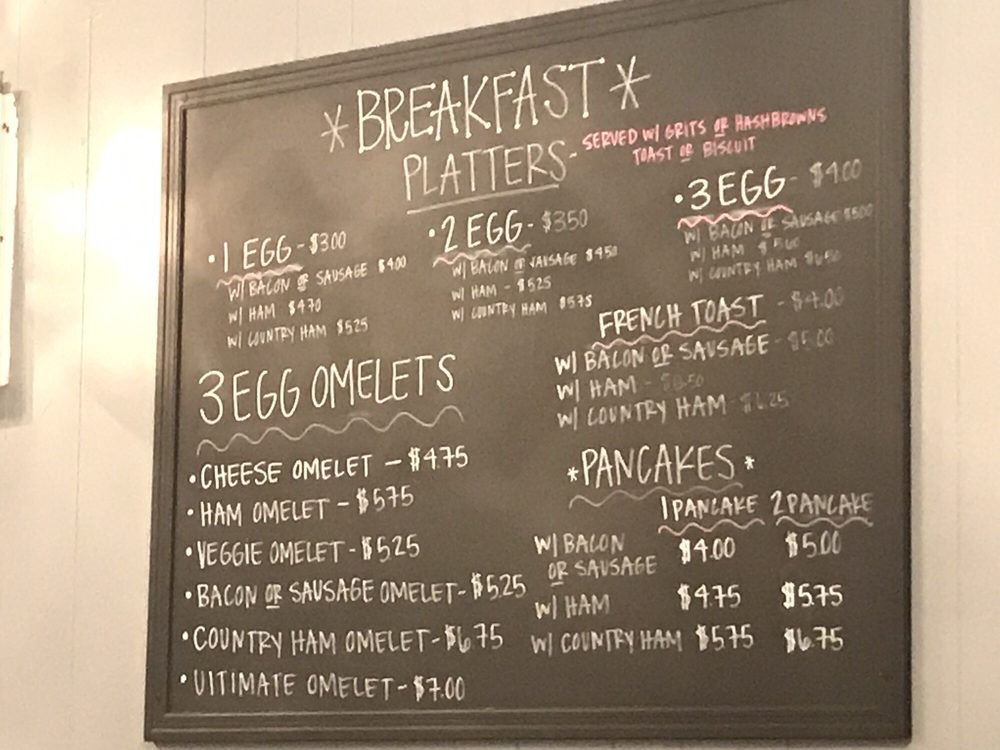 *BREAKFAST*
PLATTERS-
SERVED W/ GRITS OR HASHBROWNS
TOAST OR BISCUIT
• 1 EGG - $3.00
W/ BACON OR SAUSAGE $4.00
W/ HAM $4.70
W/ COUNTRY HAM $5.25
• 2 EGG - $3.50
W/ BACON OR SAUSAGE $4.50
W/ HAM - $5.25
W/ COUNTRY HAM $5.75
• 3 EGG - $4.00
W/ BACON OR SAUSAGE $5.00
W/ HAM
W/ COUNTRY HAM
FRENCH TOAST - $4.00
W/ BACON OR SAUSAGE - $5.00
W/ HAM -
W/ COUNTRY HAM - $6.25
3 EGG OMELETS
• CHEESE OMELET - $4.75
• HAM OMELET - $5.75
• VEGGIE OMELET - $5.25
• BACON OR SAUSAGE OMELET - $5.25
• COUNTRY HAM OMELET - $6.75
• UITIMATE OMELET - $7.00
*PANCAKES*
1 PANCAKE 2 PANCAKE
W/ BACON
OR SAUSAGE $4.00 $5.00
W/ HAM $4.75 $5.75
W/ COUNTRY HAM $5.75 $6.75